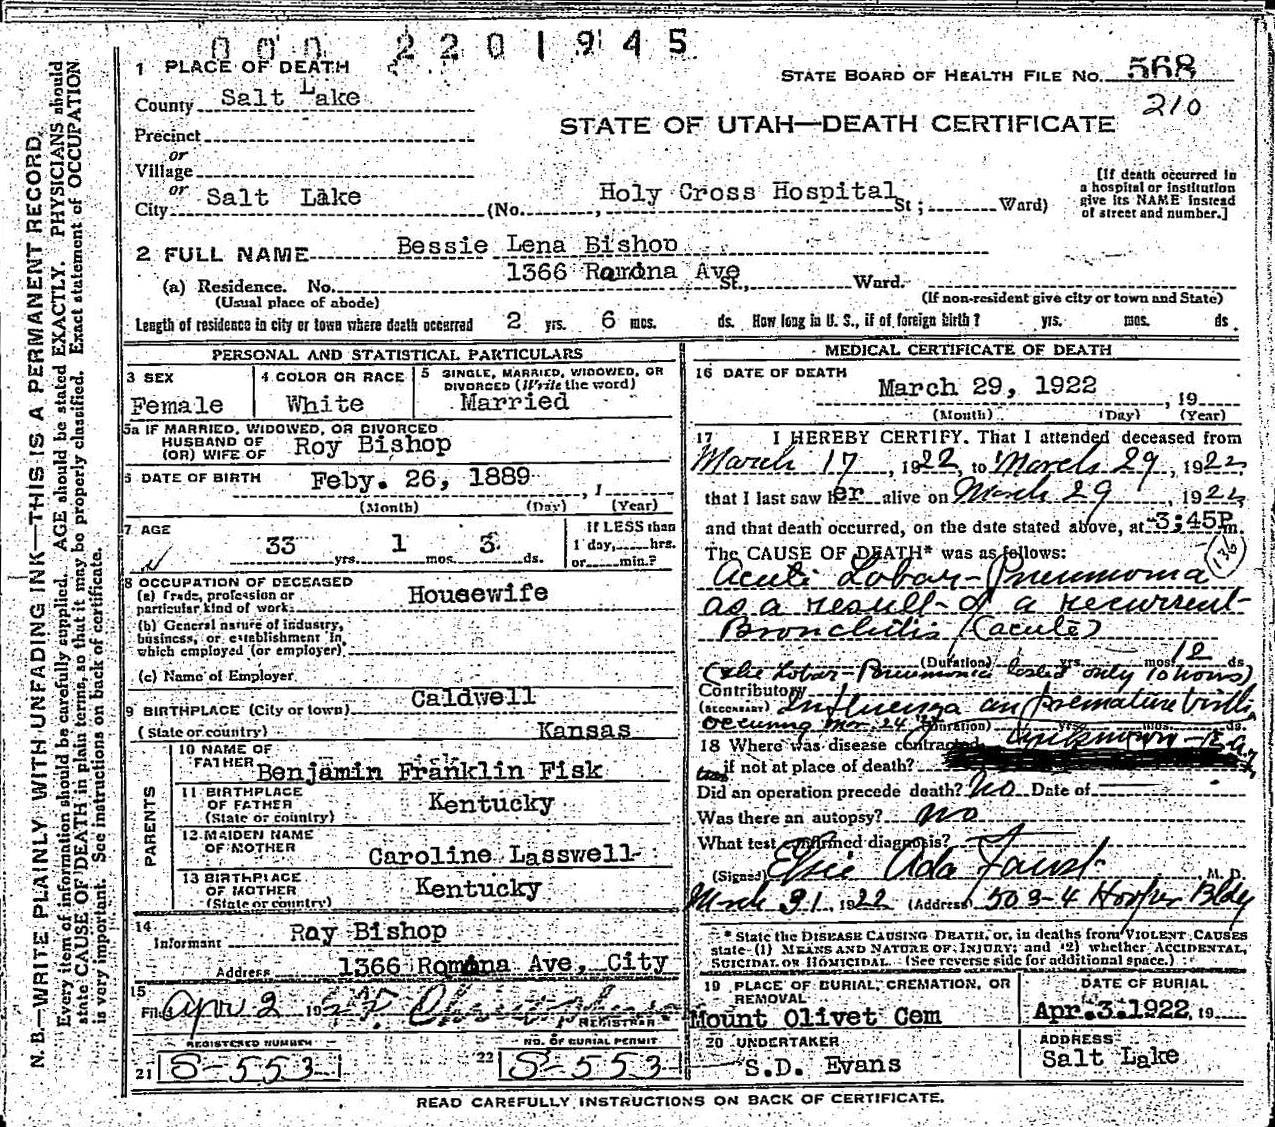 000 2201945
1 PLACE OF DEATH
STATE BOARD OF HEALTH FILE NO. 568
County Salt Lake
210
STATE OF UTAH—DEATH CERTIFICATE
Precinct
or
Village
or
City Salt Lake (No. , Holy Cross Hospital St; Ward)
[If death occurred in a hospital or institution give its NAME instead of street and number.]
2 FULL NAME Bessie Lena Bishop
(a) Residence. No. 1366 Ramona Ave St., Ward.
(Usual place of abode) (If non-resident give city or town and State)
Length of residence in city or town where death occurred 2 yrs. 6 mos. ds. How long in U. S., if of foreign birth? yrs. mos. ds.
PERSONAL AND STATISTICAL PARTICULARS
3 SEX
Female
4 COLOR OR RACE
White
5 SINGLE, MARRIED, WIDOWED, OR DIVORCED (Write the word)
Married
5a IF MARRIED, WIDOWED, OR DIVORCED
HUSBAND OF
(OR) WIFE OF Roy Bishop
6 DATE OF BIRTH Feby. 26, 1889 , 1
(Month) (Day) (Year)
7 AGE
33 yrs. 1 mos. 3 ds.
If LESS than
1 day, hrs.
or min.?
8 OCCUPATION OF DECEASED
(a) Trade, profession or
particular kind of work Housewife
(b) General nature of industry,
business, or establishment in
which employed (or employer)
(c) Name of Employer
9 BIRTHPLACE (City or town) Caldwell
(State or country) Kansas
PARENTS
10 NAME OF
FATHER Benjamin Franklin Fisk
11 BIRTHPLACE
OF FATHER Kentucky
(State or country)
12 MAIDEN NAME
OF MOTHER Caroline Lasswell
13 BIRTHPLACE
OF MOTHER Kentucky
(State or country)
14
Informant Roy Bishop
Address 1366 Romona Ave, City
15
Filed Apr 2 19
REGISTRAR
REGISTERED NUMBER
21 S-553
NO. OF BURIAL PERMIT
22 S-553
MEDICAL CERTIFICATE OF DEATH
16 DATE OF DEATH
March 29, 1922 , 19
(Month) (Day) (Year)
17 I HEREBY CERTIFY, That I attended deceased from
March 17, 1922, to March 29, 1922
that I last saw her alive on March 29, 1922
and that death occurred, on the date stated above, at 3:45P m.
The CAUSE OF DEATH* was as follows:
136
Acute Lobar-Pneumonia
as a result of a recurrent
Bronchitis (acute)
(Duration) yrs. mos. 12 ds
(The Lobar-Pneumonia lasted only 10 hours)
Contributory
(SECONDARY) Influenza an premature birth
occuring Mar. 24 (Duration) yrs. mos. ds.
18 Where was disease contracted unknown
if not at place of death?
Did an operation precede death? No Date of
Was there an autopsy? no
What test confirmed diagnosis?
(Signed) Elsie Ada Faust M. D.
March 31, 1922 (Address) 503-4 Hooper Bldg
* State the DISEASE CAUSING DEATH, or, in deaths from VIOLENT CAUSES
state (1) MEANS AND NATURE OF INJURY; and (2) whether ACCIDENTAL,
SUICIDAL OR HOMICIDAL. (See reverse side for additional space.)
19 PLACE OF BURIAL, CREMATION, OR
REMOVAL
Mount Olivet Cem
DATE OF BURIAL
Apr. 3. 1922, 19
20 UNDERTAKER
S.D. Evans
ADDRESS
Salt Lake
READ CAREFULLY INSTRUCTIONS ON BACK OF CERTIFICATE.
N. B.—WRITE PLAINLY WITH UNFADING INK—THIS IS A PERMANENT RECORD.
Every item of information should be carefully supplied. AGE should be stated EXACTLY. PHYSICIANS should
state CAUSE OF DEATH in plain terms, so that it may be properly classified. Exact statement of OCCUPATION
is very important. See instructions on back of certificate.